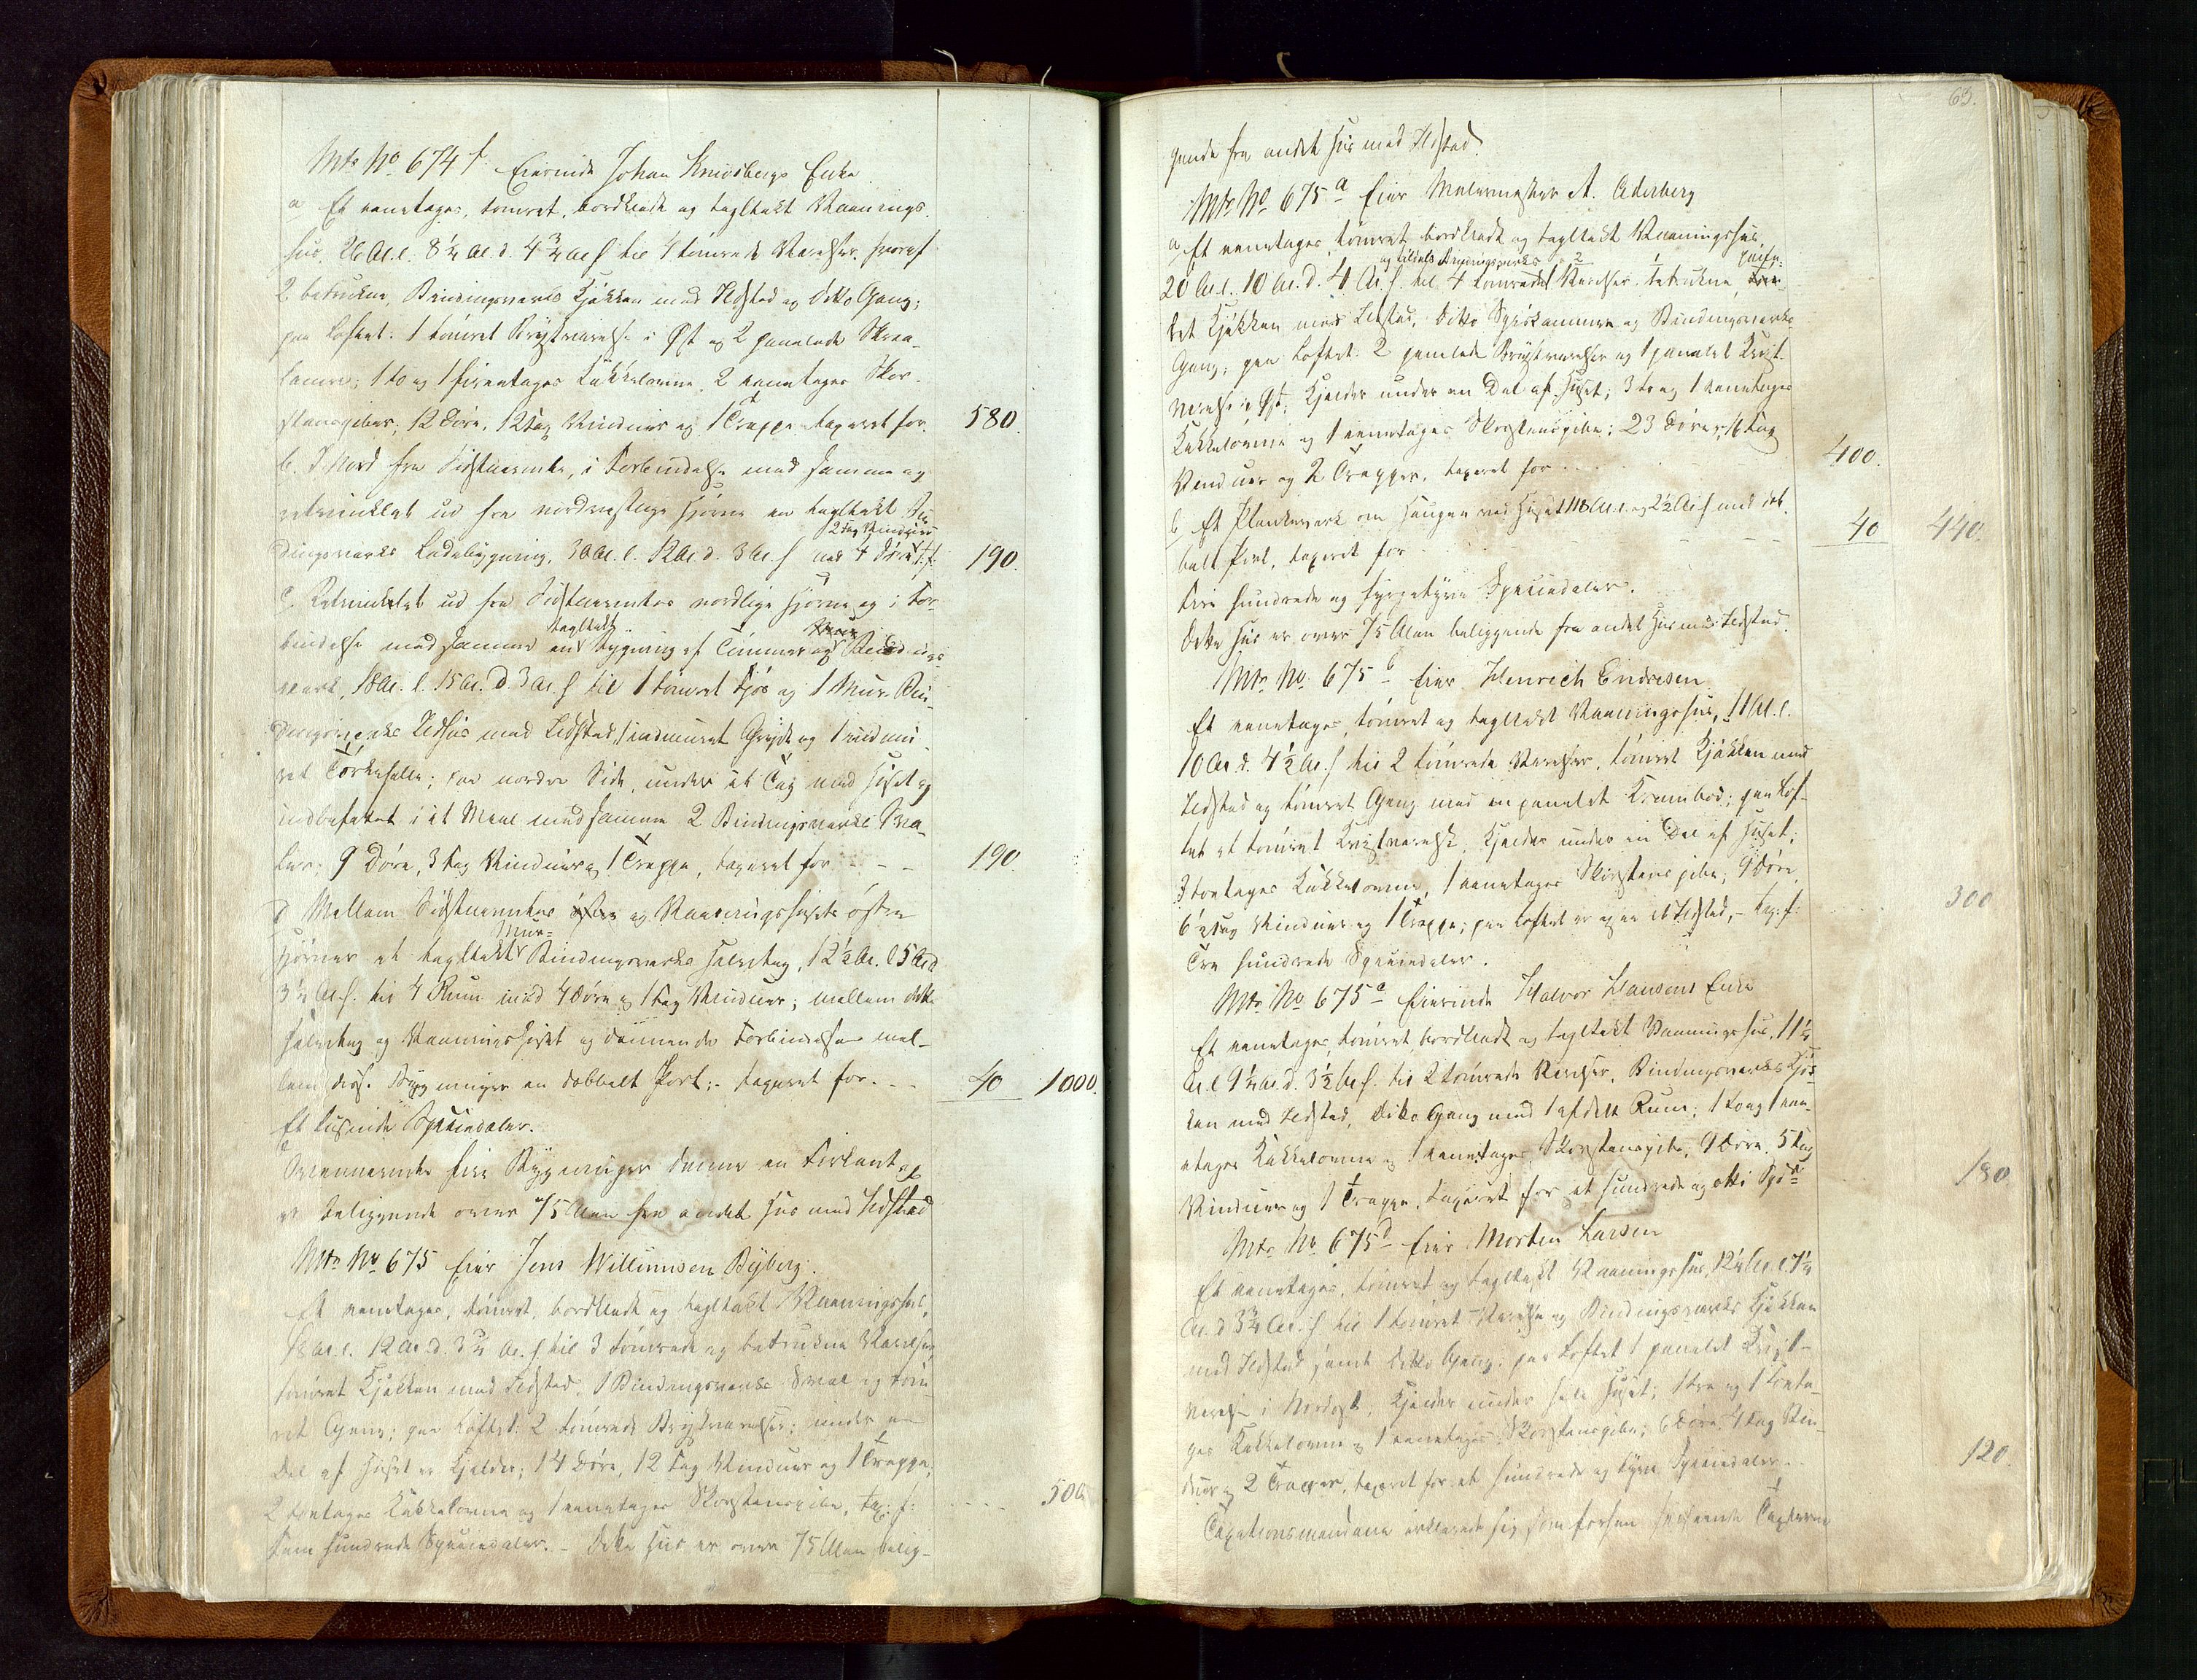 Mtr No 674 f. Eierinde Johan Knudsbergs Enke
a Et eenetages, tømret, bordklædt og tagltækt Vaanings-
huus, 26 Al. l. 8½ Al. d. 4¾ Al. h. til 4 tømrede Værelser, hvoraf
2 betrukne, Bindingsværks Kjøkken med Ildsted og ditto Gang;
paa Loftet: 1 tømret Kvistværelse i Øst og 2 panelede Skraa-
kamre; 1 to og 1 fireetages Kakkelovne, 2 eenetages Skor-
stenspiber, 12 Døre, 12 Fag Vinduer og 1 Trappe taxeret for
580.
b. I Nord fra Sidstnævnte, i Forbindelse med samme og
retvinklet ud fra nordvestlige Hjørne en tagltækt Bin-
2 Fag Vinduer
dingsværks Ladebygning, 30 Al. l. 12 Al. d. 3 Al. h. med 4 Døre t. f.
190.
c, Retvinklet ud fra Sidstnævntes nordlige Hjørne og i For-
tagltækt
bindelse med samme en Bygning af Tømmer og Bindings-
værk, 18 Al. l. 15 Al. d. 3 Al. h. til 1 tømret Fjøs og 1 Muur Bin-
dingsværks Ildhuus med Ildsted, 1 indmuret Gryde og 1 indmu-
ret Tørkehelle; paa nordre Side, under et Tag med Huset og
indbefattet i et Maal med samme 2 Bindingsværks Sva-
ler; 9 Døre, 3 Fag Vinduer og 1 Trappe, taxeret for - -
190.
d Mellem Sidstnævntes og Vaaningshusets østre
Muur-
Hjørner et tagltækt Bindingsværks Halvtag, 12½ Al. l. 5 Al. d.
3½ Al. h. til 4 Rum med 4 Døre og 1 Fag Vinduer; mellem dette
Halvtag og Vaaningshuset og dannende Forbindelse mel-
lem disse Bygninger en dobbelt Port; - taxeret for. -
40 1000.
Et tusinde Speciedaler.
Ovennævnte fire Bygninger danne en Firkant og
er beliggende over 75 Alen fra andet Huus med Ildsted
Mtr No 675 Eier Jens Willumsen Byberg.
Et eenetages, tømret, bordklædt og tagltækt Vaaningshuus,
18 Al. l. 12 Al. d. 3¾ Al. h. til 3 tømrede og betrukne Værelser,
tømret Kjøkken med Ildsted, 1 Bindingsværks Sval og tøm-
ret Gang; paa Loftet: 2 tømrede Kvistværelser; under en
Deel af Huset er Kjelder; 14 Døre, 12 Fag Vinduer og 1 Trappe,
2 toetages Kakkelovne og 1 eenetages Skorstenspibe, tax: f:
500.
Fem hundrede Speciedaler. - Dette Huus er over 75 Alen belig-
63.
gende fra andet Huus med Ildsted.
Mtr No 675 a Eier Malermester A. Cederberg
a, Et eenetages tømret bordklædt og tagltækt Vaaningshuus,
og tildels Bindingsværks
20 Al. l. 10 Al. d. 4 Al. h. til 4 tømrede Værelser, betrukne,
det Kjøkken med Ildsted, ditto Spiiskammer og Bindingsværks
Gang; paa Loftet: 2 panelede Kvistværelser og 1 panelet Kvist-
værelse i Øst; Kjelder under en Del af Huset; 3 to og 1 eenetages
Kakkelovne og 1 eenetages Skorstenspibe; 23 Døre, 16 Fag
Vinduer og 2 Trapper, taxeret for . .
400.
b, Et Plankeværk om Haugen ved Huset 118 Al. l. og 2½ Al. h. med dob-
belt Port, taxeret for
40 440.
Fire hundrede og fyrgetyve Speciedaler.
Dette Huus er over 75 Alen beliggende fra andet Huus med Ildsted.
Mtr No 675 b Eier Henrich Endresen
Et eenetages, tømret og tagltækt Vaaningshuus, 11 Al. l.
10 Al. d. 4½ Al. h. til 2 tømrede Værelser, tømret Kjøkken med
Ildsted og tømret Gang med en panelet Krambod; paa Lof-
tet et tømret Kvistværelse, Kjelder under en Del af Huset;
3 toetages Kakkelovne, 1 eenetages Skorstenspibe, 9 Døre,
6½ Fag Vinduer og 1 Trappe; paa Loftet er ogsaa et Ildsted, - tax: f:
300
Tre hundrede Speciedaler.
Mtr No 675 c Eierinde Halvor Hansens Enke
Et eenetages, tømret, bordklædt og tagltækt Vaaningshuus, 11½
Al. l. 9½ Al. d. 3½ Al. h. til 2 tømrede Værelser, Bindingsværks Kjøk-
ken med Ildsted, ditto Gang med 1 afdelt Rum; 1 to og 1 een-
etages Kakkelovne og 1 eenetages Skorstenspibe, 9 Døre, 5 Fag
Vinduer og 1 Trappe, taxeret for et hundrede og otti Spd
180
Mtr No 675 d Eier Morten Larsen
Et eenetages, tømret og tagltækt Vaaningshuus, 12½ Al. l. 7½
Al. d. 3¾ Al. h. til 1 tømret Værelse og Bindingsværks Kjøkken
med Ildsted samt ditto Gang; paa Loftet 1 panelet Kvist-
værelse i Nordost, Kjelder under hele Huset; 1 tre og 1 toeta-
ges Kakkelovne og 1 eenetages Skorstenspibe; 6 Døre, 4 Fag Vin-
duer og 2 Trapper, taxeret for et hundrede og tyve Speciedaler.
120.
Taxationsmændene erklærede sig som forhen Taxterne